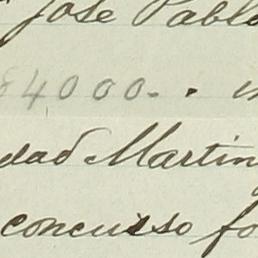 José Pablo
$4000.
dad Martin
concurso fo